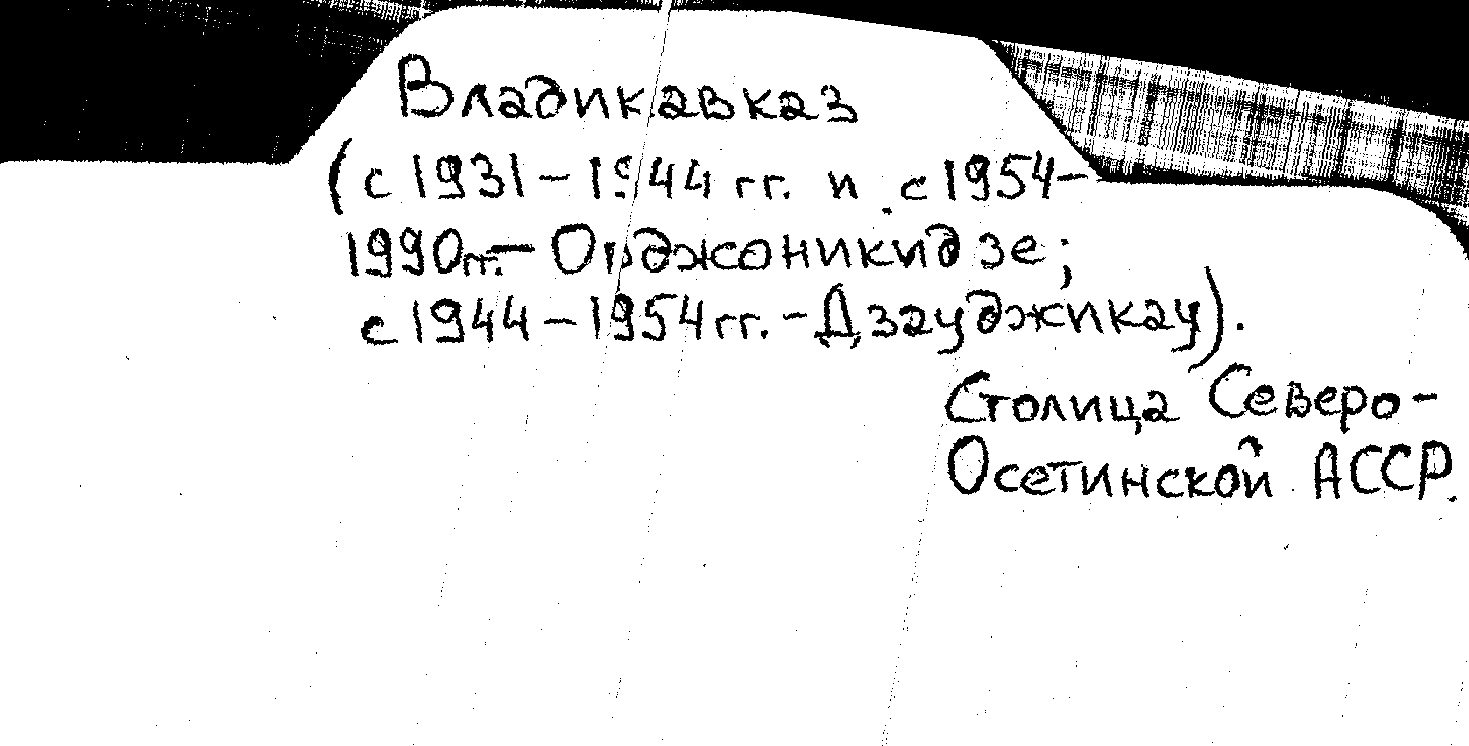 Владикавказ
(с 1931 – 1944 гг. и с 1954–
1990гг. – Орджоникидзе;
с 1944 – 1954 гг. – Дзауджикау).
Столица Северо-
Осетинской АССР.